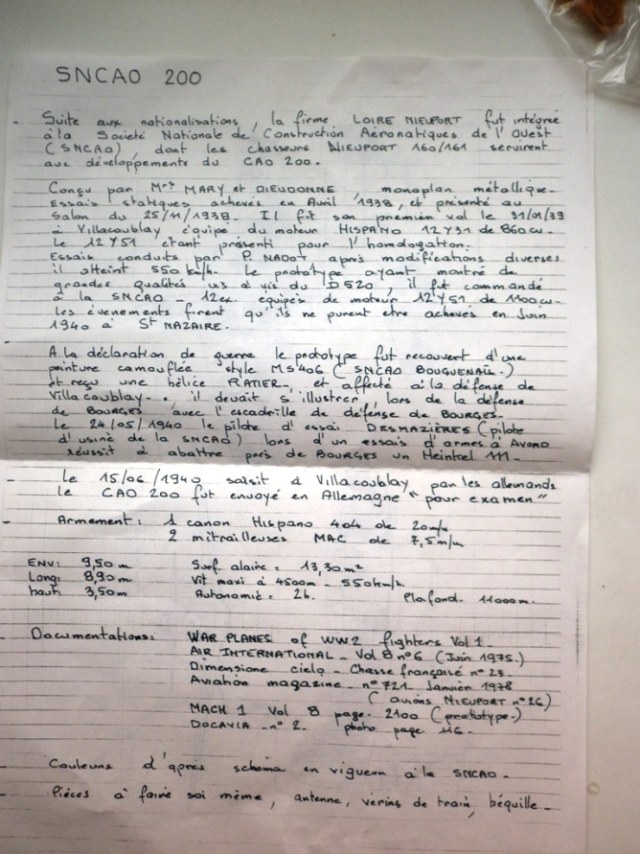 SNCAO 200
- Suite aux nationalisations, la firme LOIRE NIEUPORT fut intégrée
à la Société Nationale de Construction Aéronatiques de l'Ouest
(SNCAO), dont les chasseurs NIEUPORT 160/161 servirent
aux développements du CAO 200.
Conçu par Mrs MARY et DIEUDONNE, monoplan métallique.
Essais statiques achevés en Avril 1938, et présenté au
Salon du 25/11/1938. Il fit son premier vol le 31/01/39
à Villacoublay équipé du moteur HISPANO 12Y31 de 860cv.
Le 12Y51 étant présenti pour l'homologation.
Essais conduits par P. NADOT après modifications diverses
il atteint 550 km/h. Le prototype ayant montré de
grandes qualités vis à vis du D520, il fut commandé
à la SNCAO - 12ex. équipés de moteur 12Y51 de 1100cv.
les évenements firent qu'ils ne purent etre achevés en Juin
1940 à St NAZAIRE.
- A la déclaration de guerre le prototype fut recouvert d'une
peinture camouflée style MS406 (SNCAO BOUGUENAIS.)
et reçu une hélice RATIER, et affecté à la défense de
Villacoublay. il devait s'illustrer, lors de la défense
de BOURGES avec l'escadrille de défense de BOURGES.
Le 24/05/1940 le pilote d'essai DESMAZIÈRES (pilote
d'usine de la SNCAO) lors d'un essais d'armes à AVORD
réussit à abattre près de BOURGES un Heinkel 111.
- Le 15/06/1940 saisit à Villacoublay par les allemands
le CAO 200 fut envoyé en Allemagne "pour examen"
- Armement: 1 canon Hispano 404 de 20m/m
2 mitrailleuses MAC de 7,5m/m
ENV: 9,50m Surf. alaire = 13,30m²
Long: 8,90m Vit maxi à 4500m - 550km/h.
haut: 3,50m Autonomie: 2h. Plafond. 11000m.
- Documentations: WAR PLANES of WW2 fighters Vol 1.
AIR INTERNATIONAL - Vol 8 n°6 (Juin 1975.)
Dimensione cielo - Chasse française n°23.
Aviation magazine - n°721 Janvier 1978
(avions NIEUPORT n°26)
MACH 1 Vol 8 page 2100 (prototype.)
DOCAVIA - n° 2. photo page 116.
- Couleurs d'après schéma en vigueur à la SNCAO.
- Pièces à faire soi même, antenne, verins de train, béquille.